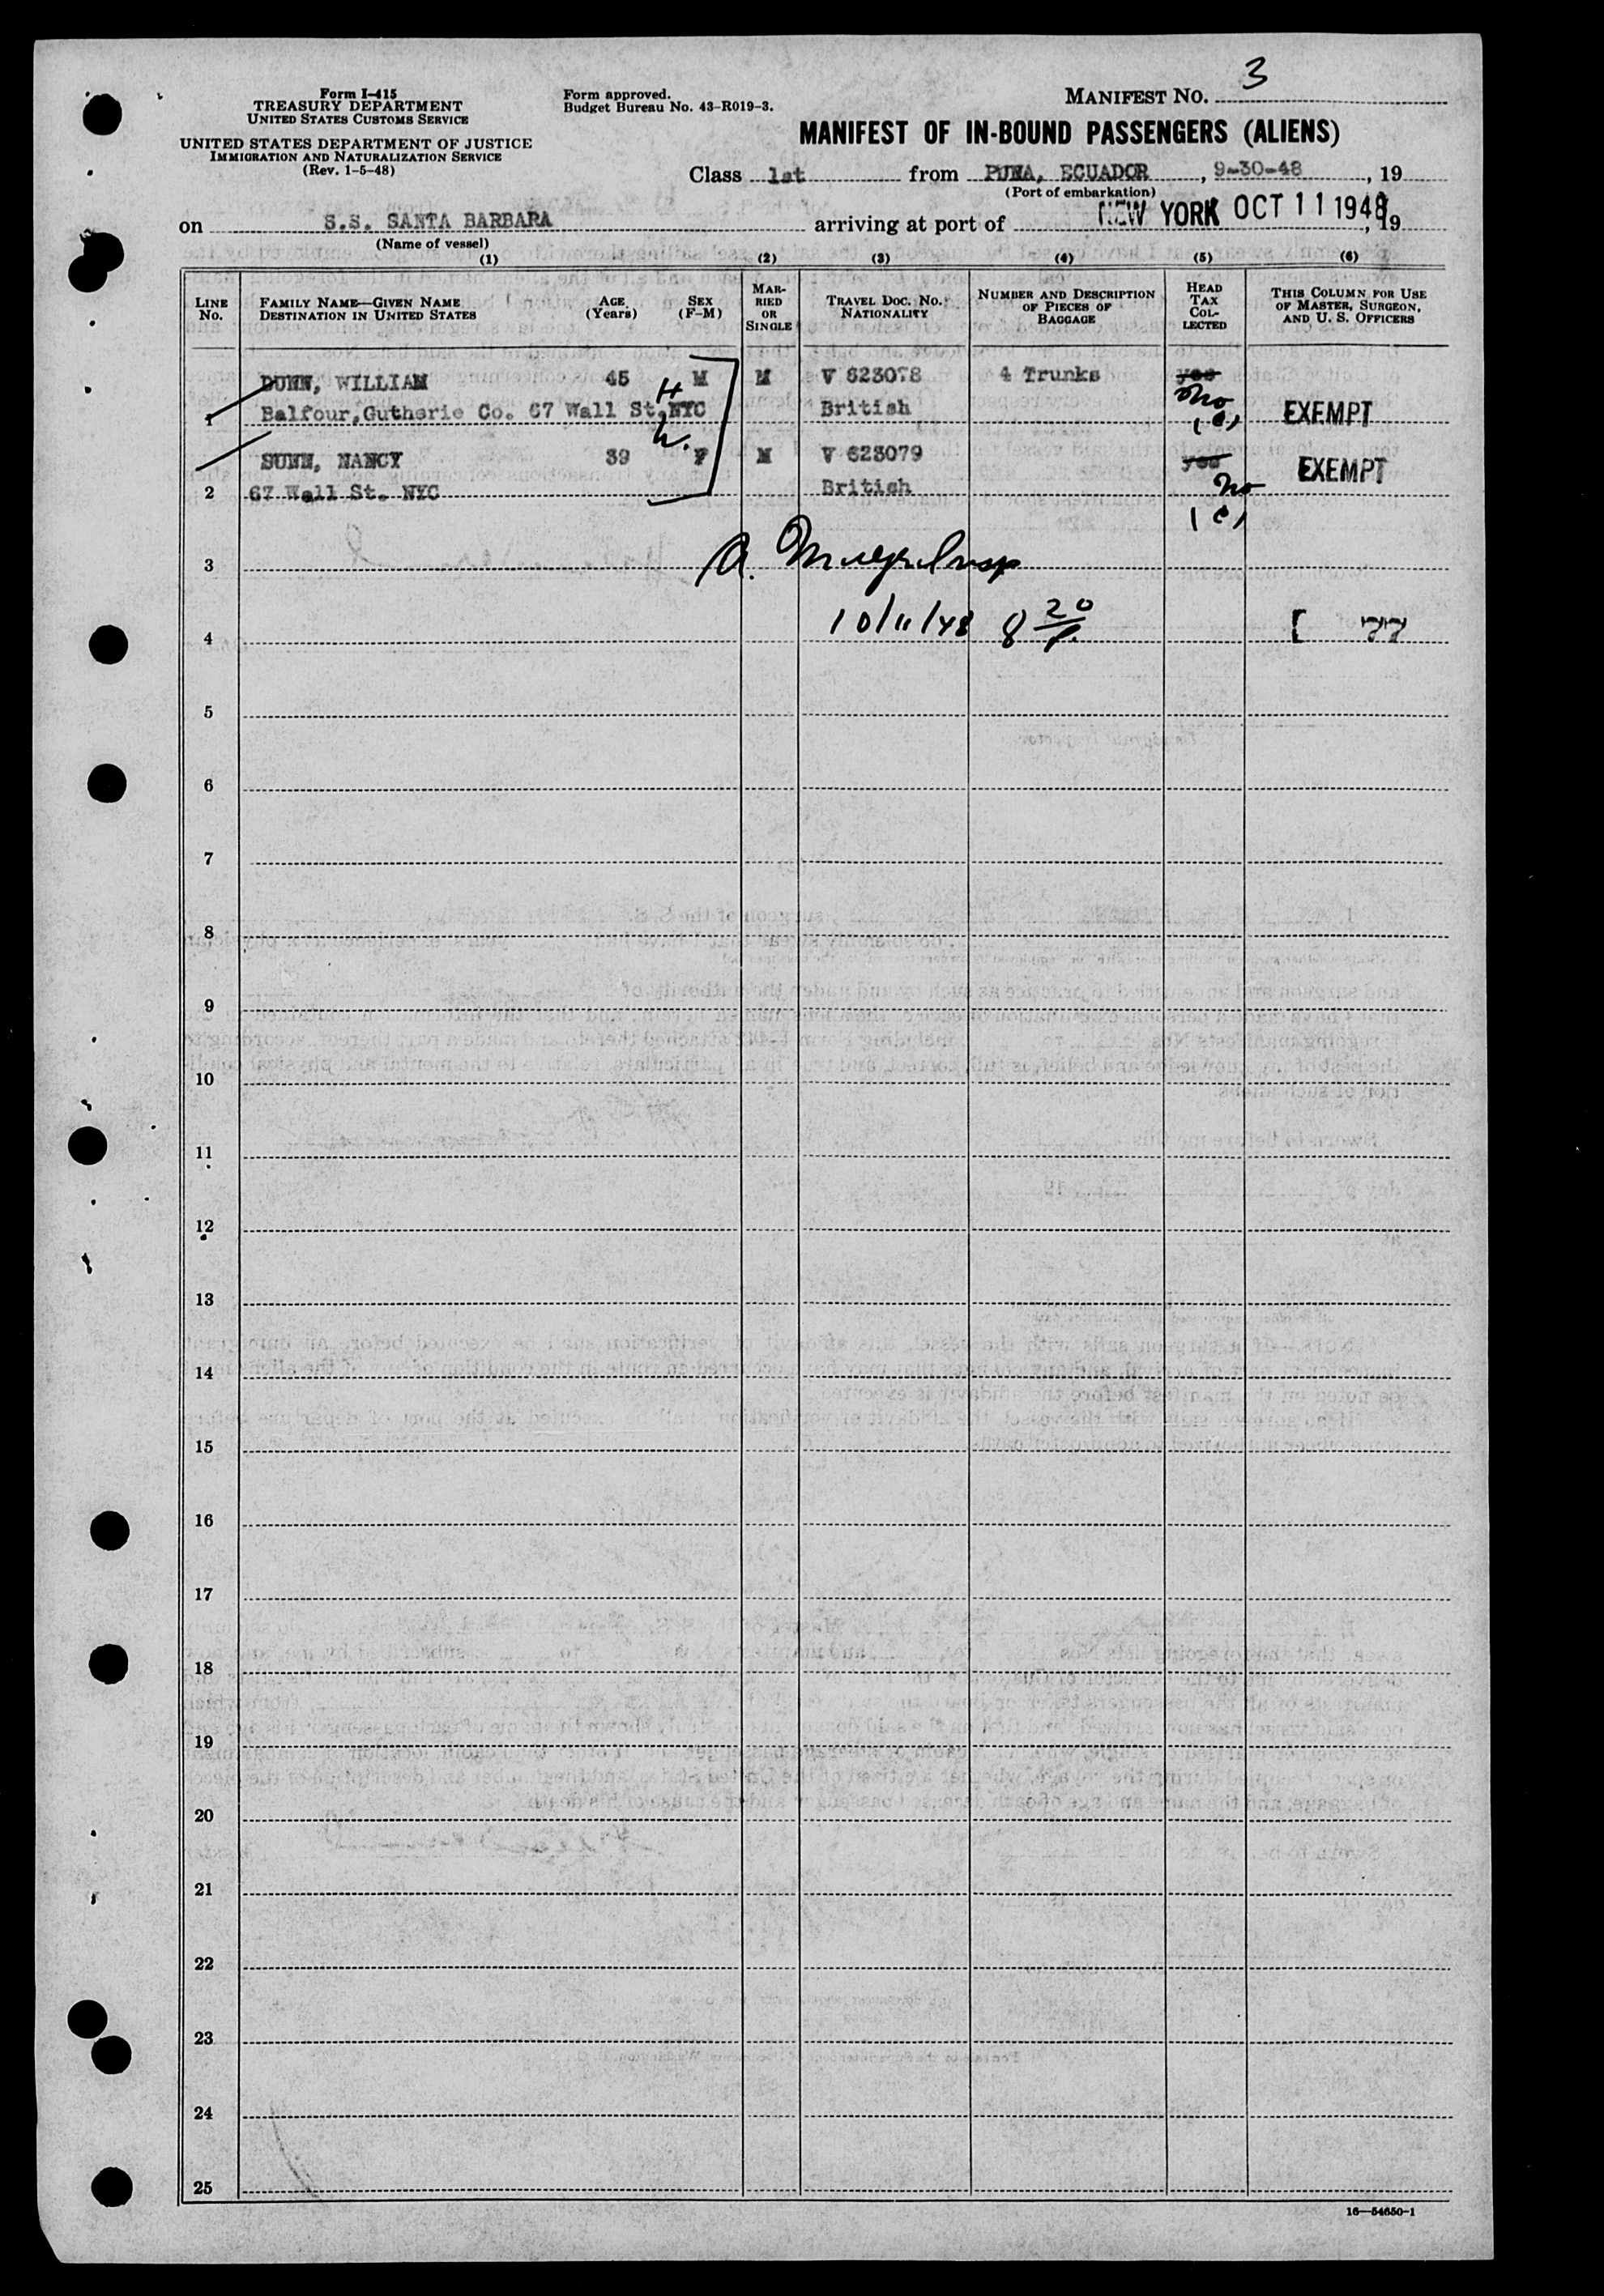 Form I-415
TREASURY DEPARTMENT
UNITED STATES CUSTOMS SERVICE
UNITED STATES DEPARTMENT OF JUSTICE
IMMIGRATION AND NATURALIZATION SERVICE
(Rev. 1-5-48)
Form approved.
Budget Bureau No. 43-R019-3.
MANIFEST NO. 3
MANIFEST OF IN-BOUND PASSENGERS (ALIENS)
Class 1st from PUNA, ECUADOR, 9-30-48, 19
(Port of embarkation)
on S.S. SANTA BARBARA arriving at port of NEW YORK OCT 11 1948, 19
(Name of vessel)
(1) (2) (3) (4) (5) (6)
LINE No. FAMILY NAME—GIVEN NAME DESTINATION IN UNITED STATES AGE (Years) SEX (F-M) MARRIED OR SINGLE TRAVEL DOC. NO. NATIONALITY NUMBER AND DESCRIPTION OF PIECES OF BAGGAGE HEAD TAX COLLECTED THIS COLUMN FOR USE OF MASTER, SURGEON, AND U. S. OFFICERS
DUNN, WILLIAM 45 H M M V 623078 4 Trunks yes
1 Balfour,Gutherie Co. 67 Wall St.NYC British No EXEMPT
SUNN, NANCY 39 W. F M V 623079 yes EXEMPT
2 67 Wall St. NYC British No
3
10/11/48 8 20
4
5
6
7
8
9
10
11
12
13
14
15
16
17
18
19
20
21
22
23
24
25
16—54650-1